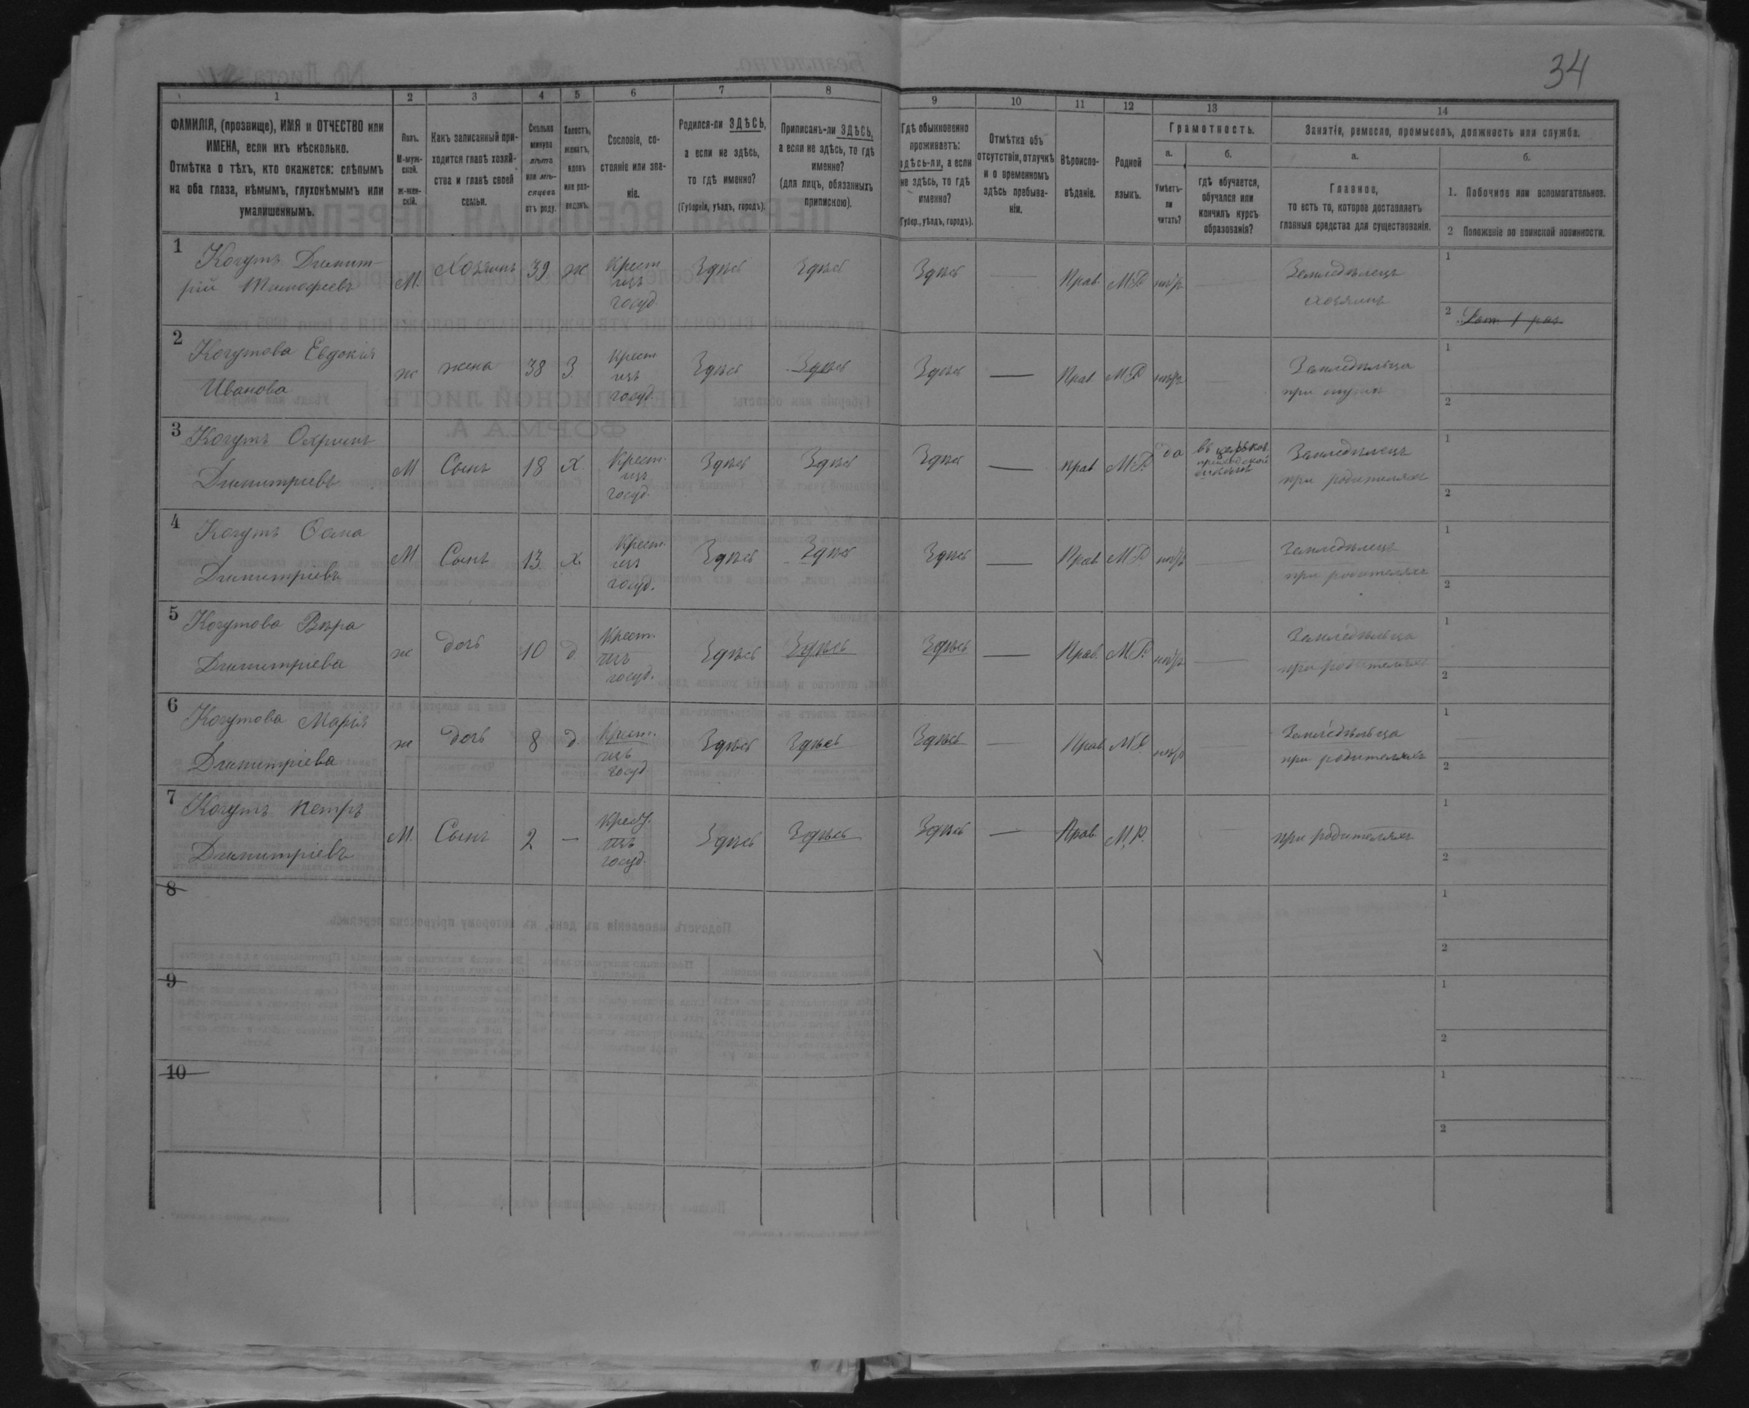 34
1
2
3
4
5
6
7
8
9
10
11
12
13
14
ФАМИЛІЯ, (прозвище), ИМЯ и ОТЧЕСТВО или
ИМЕНА, если ихъ нѣсколько.
Отмѣтка о тѣхъ, кто окажется: слѣпымъ
на оба глаза, нѣмымъ, глухонѣмымъ или
умалишеннымъ.
Полъ.
М-муж-
ской.
ж-жен-
скій.
Какъ записанный при-
ходится главѣ хозяй-
ства и главѣ своей
семьи.
Сколько
минуло
лѣтъ
или мѣ-
сяцевъ
отъ роду.
Холостъ,
женатъ,
вдовъ
или раз-
веденъ.
Сословіе, со-
стояніе или зва-
ніе.
Родился-ли ЗДѢСЬ,
а если не здѣсь,
то гдѣ именно?
(Губернія, уѣздъ, городъ).
Приписанъ-ли ЗДѢСЬ,
а если не здѣсь, то гдѣ
именно?
(для лицъ, обязанныхъ
припискою).
Гдѣ обыкновенно
проживаетъ:
здѣсь-ли, а если
не здѣсь, то гдѣ
именно?
(Губер., уѣздъ, городъ).
Отмѣтка объ
отсутствіи, отлучкѣ
и о временномъ
здѣсь пребыва-
ніи.
Вѣроиспо-
вѣданіе.
Родной
языкъ.
Грамотность.
а.
б.
Умѣетъ-
ли
читать?
гдѣ обучается,
обучался или
кончилъ курсъ
образованія?
Занятіе, ремесло, промыселъ, должность или служба.
а.
б.
Главное,
то есть то, которое доставляетъ
главныя средства для существованія.
1. Побочное или вспомогательное.
2 Положеніе по воинской повинности.
1
Когутъ Димит-
рій Тимофеевъ
М
Хозяинъ
39
ж
Крест
изъ
госуд
Здѣсь
Здѣсь
Здѣсь
—
Прав.
М.Р.
нѣтъ
Земледѣлецъ
хозяинъ
1
2
2
Когутова Евдокія
Иванова
ж
жена
38
З
Крест
изъ
госуд.
Здѣсь
Здѣсь
Здѣсь
—
Прав
М.Р.
нѣтъ
Земледѣлица
при мужѣ
1
2
3
Когутъ
Димитріевъ
М
Сынъ
18
Х
Крест.
изъ
госуд.
Здѣсь
Здѣсь
Здѣсь
—
прав
М.Р.
да
въ
Земледѣлецъ
при родителяхъ
1
2
4
Когутъ Фома
Димитріевъ
М
Сынъ
13
Х
Крест.
изъ
госуд.
Здѣсь
Здѣсь
Здѣсь
—
Прав
М.Р.
нѣтъ
Земледѣлецъ
при родителяхъ
1
2
5
Когутова Вѣра
Димитріева
ж
дочь
10
д
Крест.
изъ
госуд.
Здѣсь
Здѣсь
Здѣсь
—
Прав.
М.Р.
нѣтъ
Земледѣлица
при родителяхъ
1
2
6
Когутова Марія
Димитріева
ж
дочь
8
д
Крест.
изъ
госуд
Здѣсь
Здѣсь
Здѣсь
—
Прав.
М.Р.
нѣтъ
Земледѣлица
при родителяхъ
1
2
7
Когутъ Петръ
Димитріевъ
М
Сынъ
2
—
Крест.
изъ
госуд.
Здѣсь
Здѣсь
Здѣсь
—
Прав
М.Р.
при родителяхъ
1
2
8
1
2
9
1
2
10
1
2